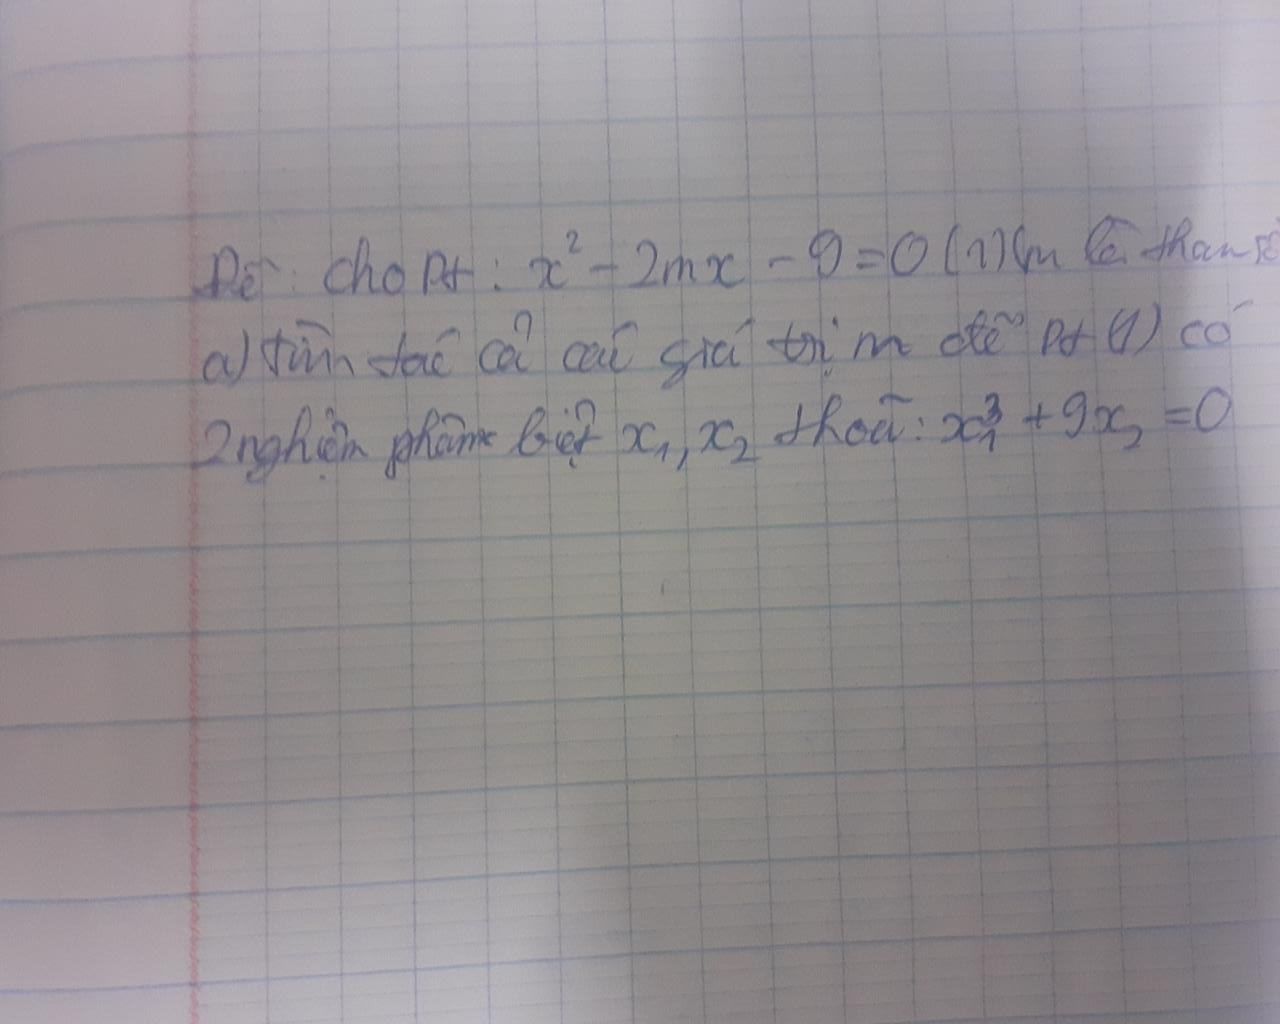 Đề: cho Pt: x² - 2mx - 9 = 0 (1) (m là tham số
a) tìm tác cả các giá trị m để Pt (1) có
2 nghiệm phâm biệt x₁, x₂ thoã: x₁³ + 9x₂ = 0